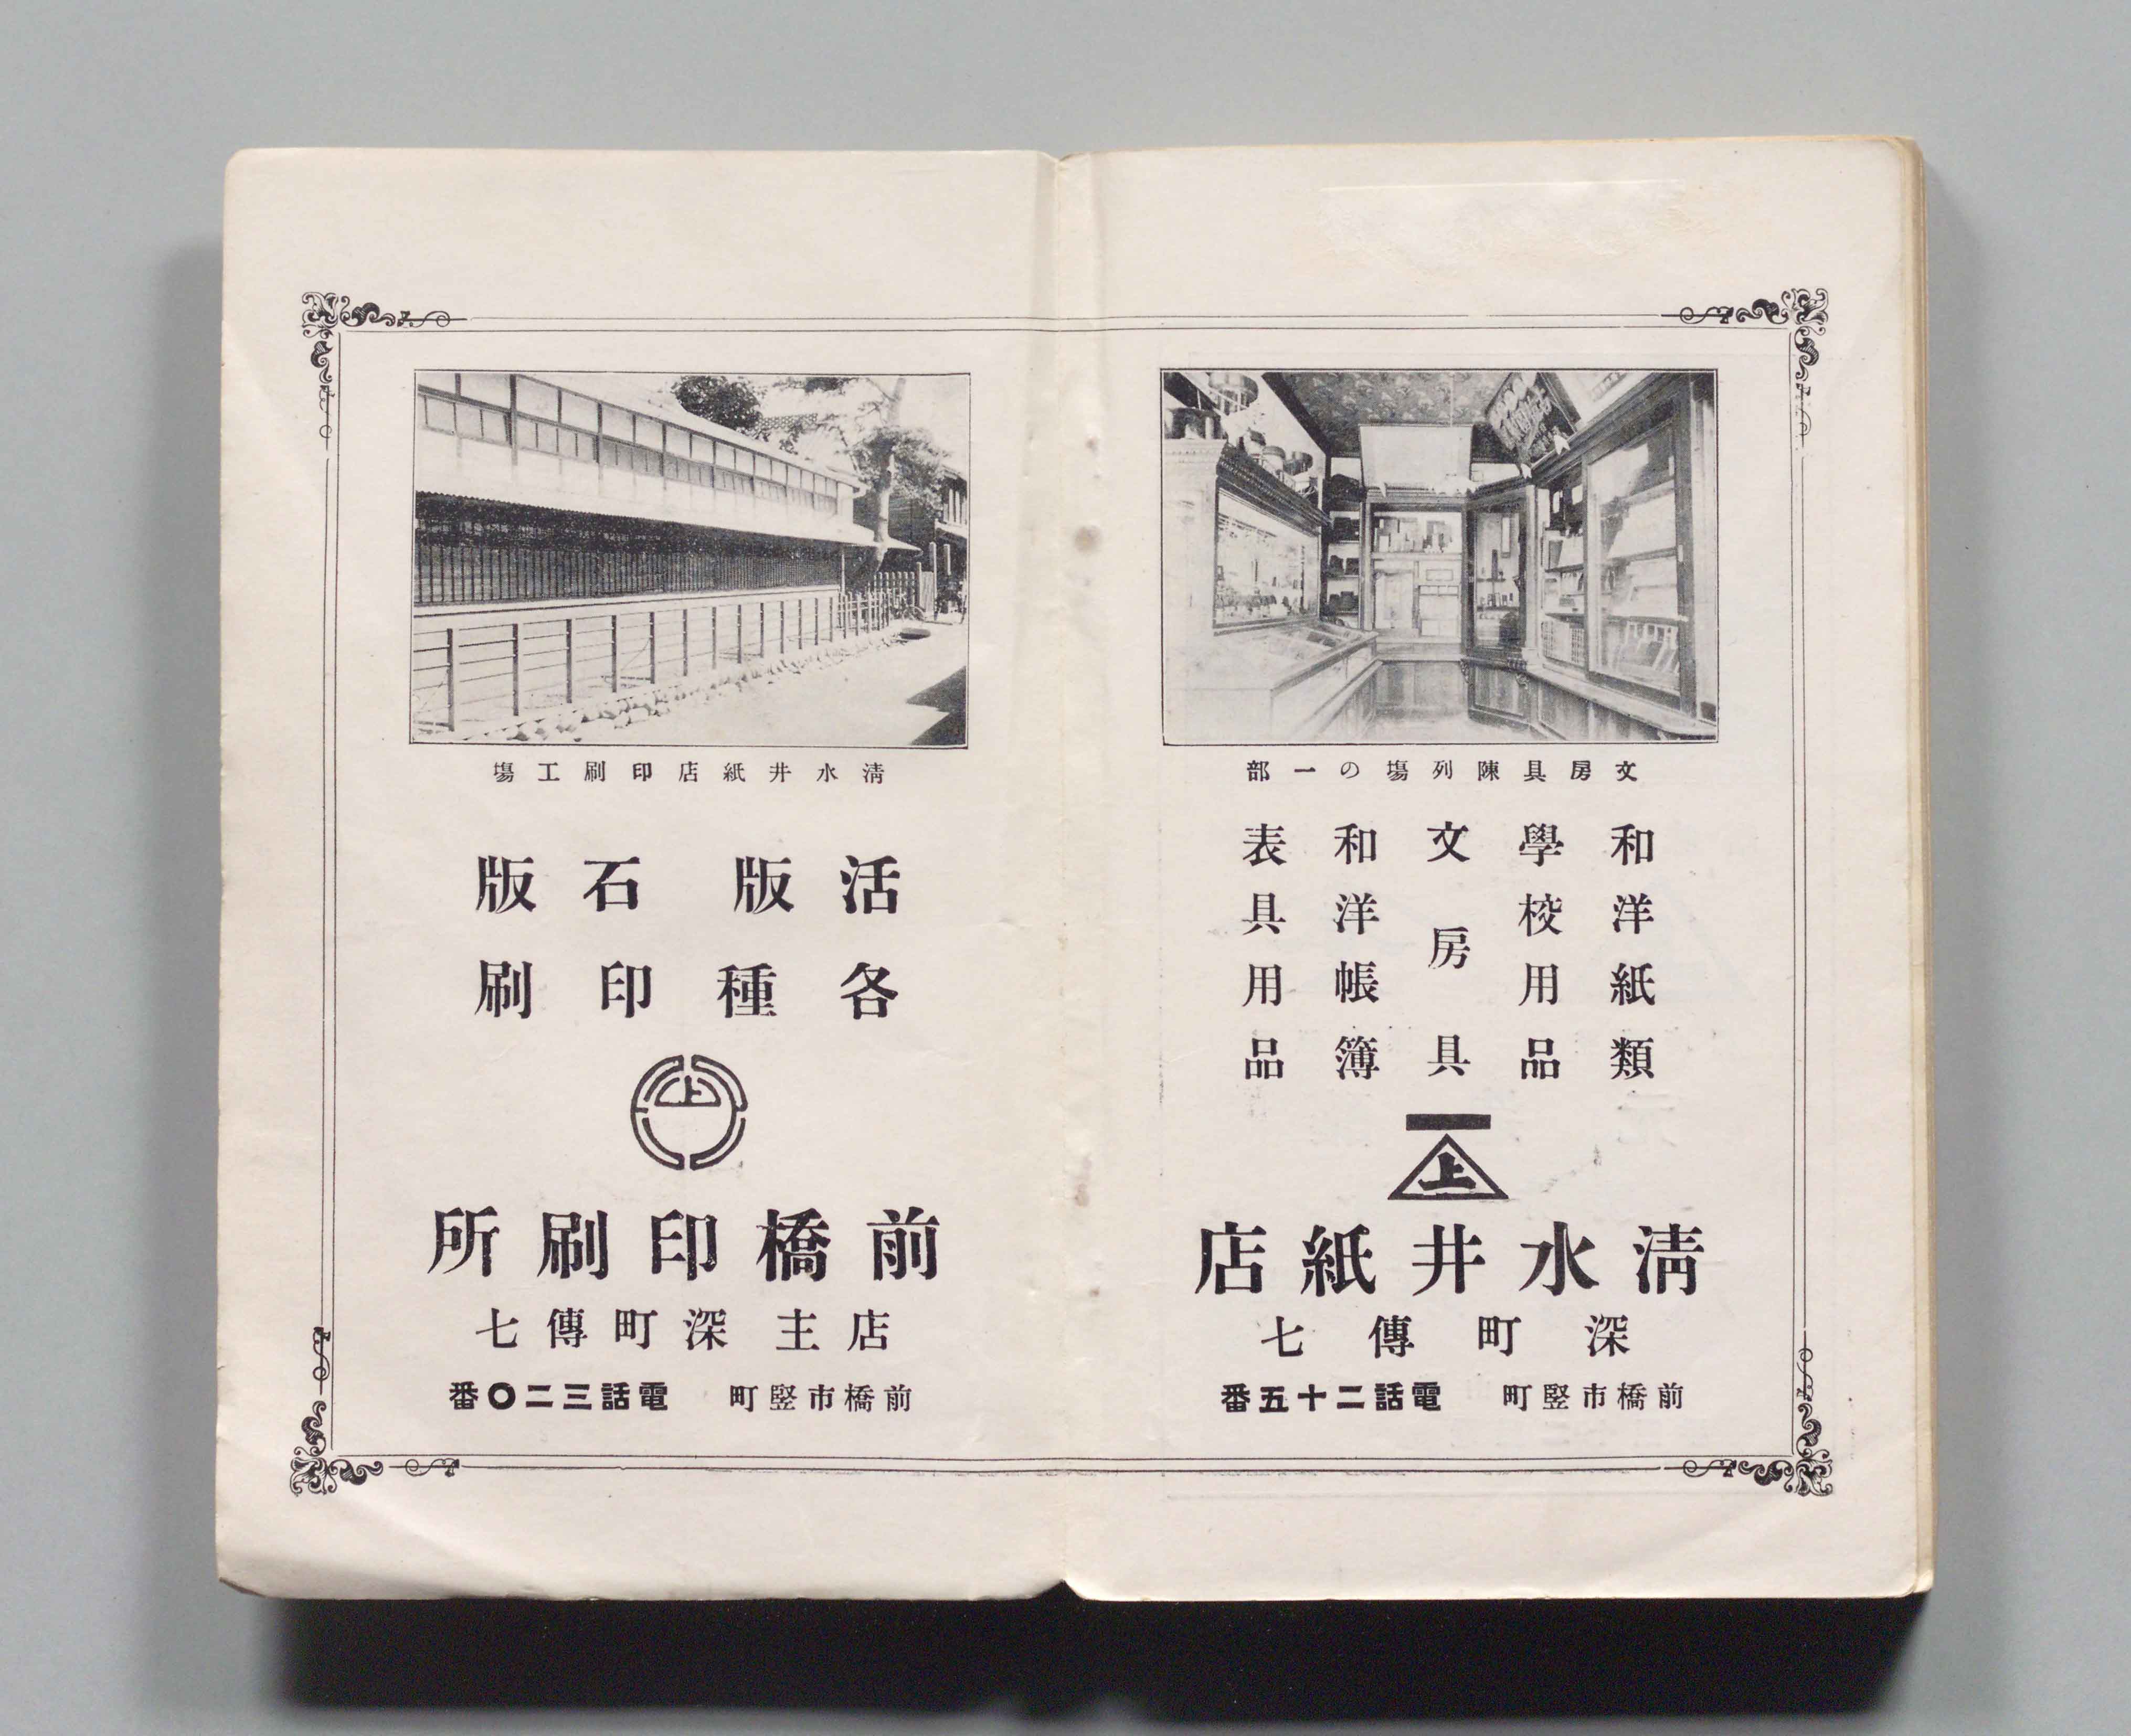 文房具陳列場の一部
和洋紙類
學校用品
文房具
和洋帳簿
表具用品
上
淸水井紙店
深町傳七
前橋市竪町 電話二十五番
淸水井紙店印刷工場
活版 石版
各種印刷
上
前橋印刷所
店主 深町傳七
前橋市竪町 電話三二〇番